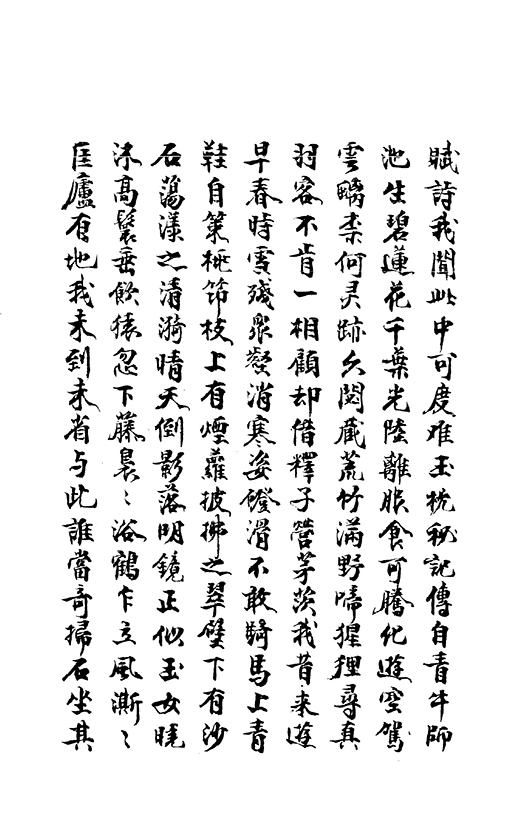 賦詩我聞此中可度难玉枕秘記傳自青牛師
池生碧蓮花千葉光陸離服食可騰化遊空駕
雲螭柰何灵跡久閟蔵荒竹滿野啼猩狸尋真
羽客不肯一相顧却借釋子營茅茨我昔来遊
早春時雪殘眾壑消寒姿磴滑不敢騎馬上青
鞋自策桃笻枝上有煙蘿披拂之翠壁下有沙
石蕩漾之清漪晴天倒影落明鏡正似玉女曉
沐高鬟垂飲猿忽下藤裊〻浴鶴乍立風澌〻
匡廬有地我未到未省与此誰當奇掃石坐其